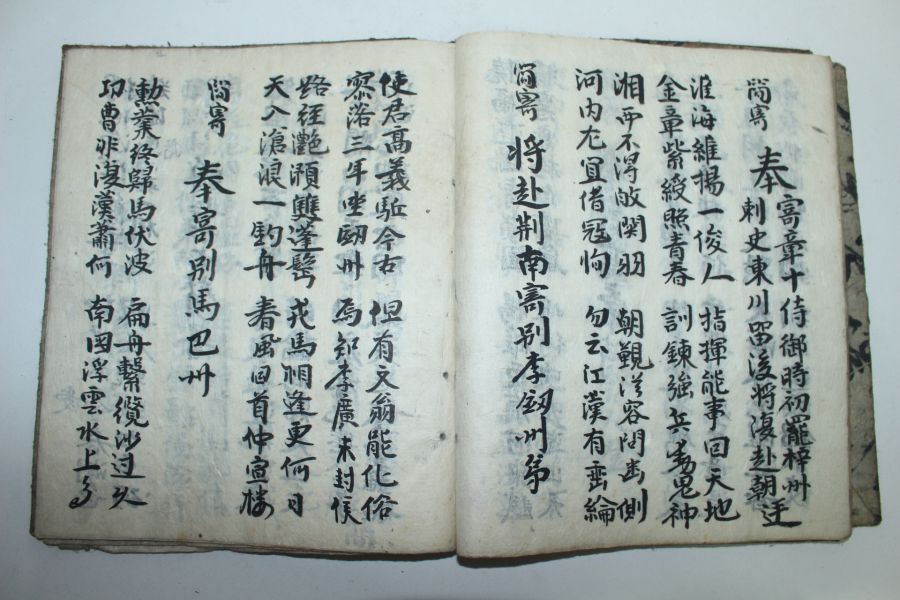 簡寄 奉寄章十侍御時初罷梓州
刺史東川留後将復赴朝廷
淮海維揚一俊人 指揮能事回天地
金章紫綬照青春 訓鍊強兵動鬼神
湘西不得敀関羽 朝覲從容問幽側
河内尤宜借冦恂 勿云江漢有垂綸
簡寄 将赴荆南寄別李劒州弟
使君高義駈今古 但有文翁能化俗
寥落三年坐劒州 焉知李廣未封侯
路経灔澦雙蓬鬂 戎馬相逢更何日
天入滄浪一釣舟 春風回首仲宣樓
簡寄 奉寄別馬巴州
勲業終歸馬伏波 扁舟繫纜沙过久
功曹非復漢蕭何 南国浮雲水上多